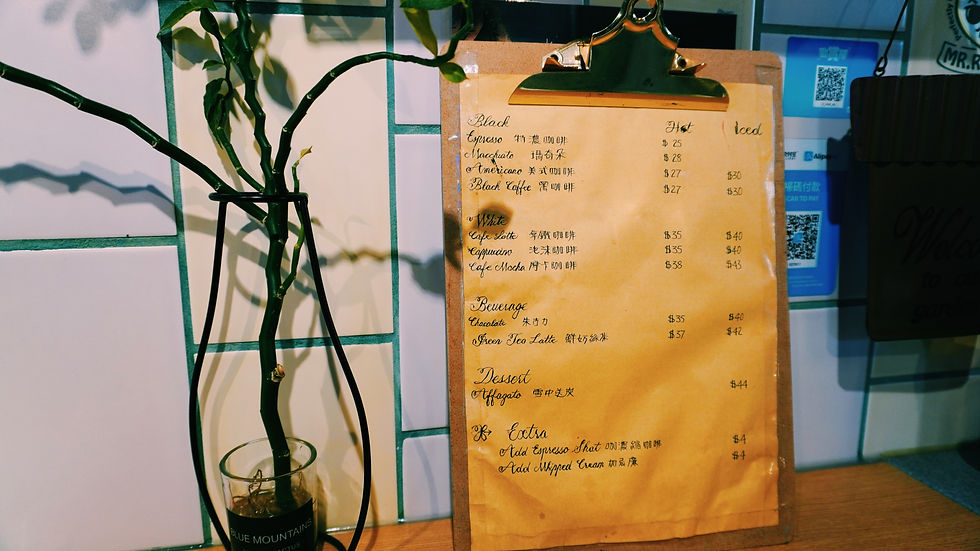 Black Hot Iced
Espresso 特濃咖啡 $25
Macchiato 瑪奇朵 $28
Americano 美式咖啡 $27 $30
Black Coffee 黑咖啡 $27 $30
White
Cafe Latte 拿鐵咖啡 $35 $40
Cappuccino 泡沫咖啡 $35 $40
Cafe Mocha 摩卡咖啡 $38 $43
Beverage
Chocolate 朱古力 $35 $40
Green Tea Latte $37 $42
Dessert
Affagato 雪中送炭 $44
Extra
Add Espresso Shot $4
Add Whipped Cream 加忌廉 $4
BLUE MOUNTAINS
MR.R